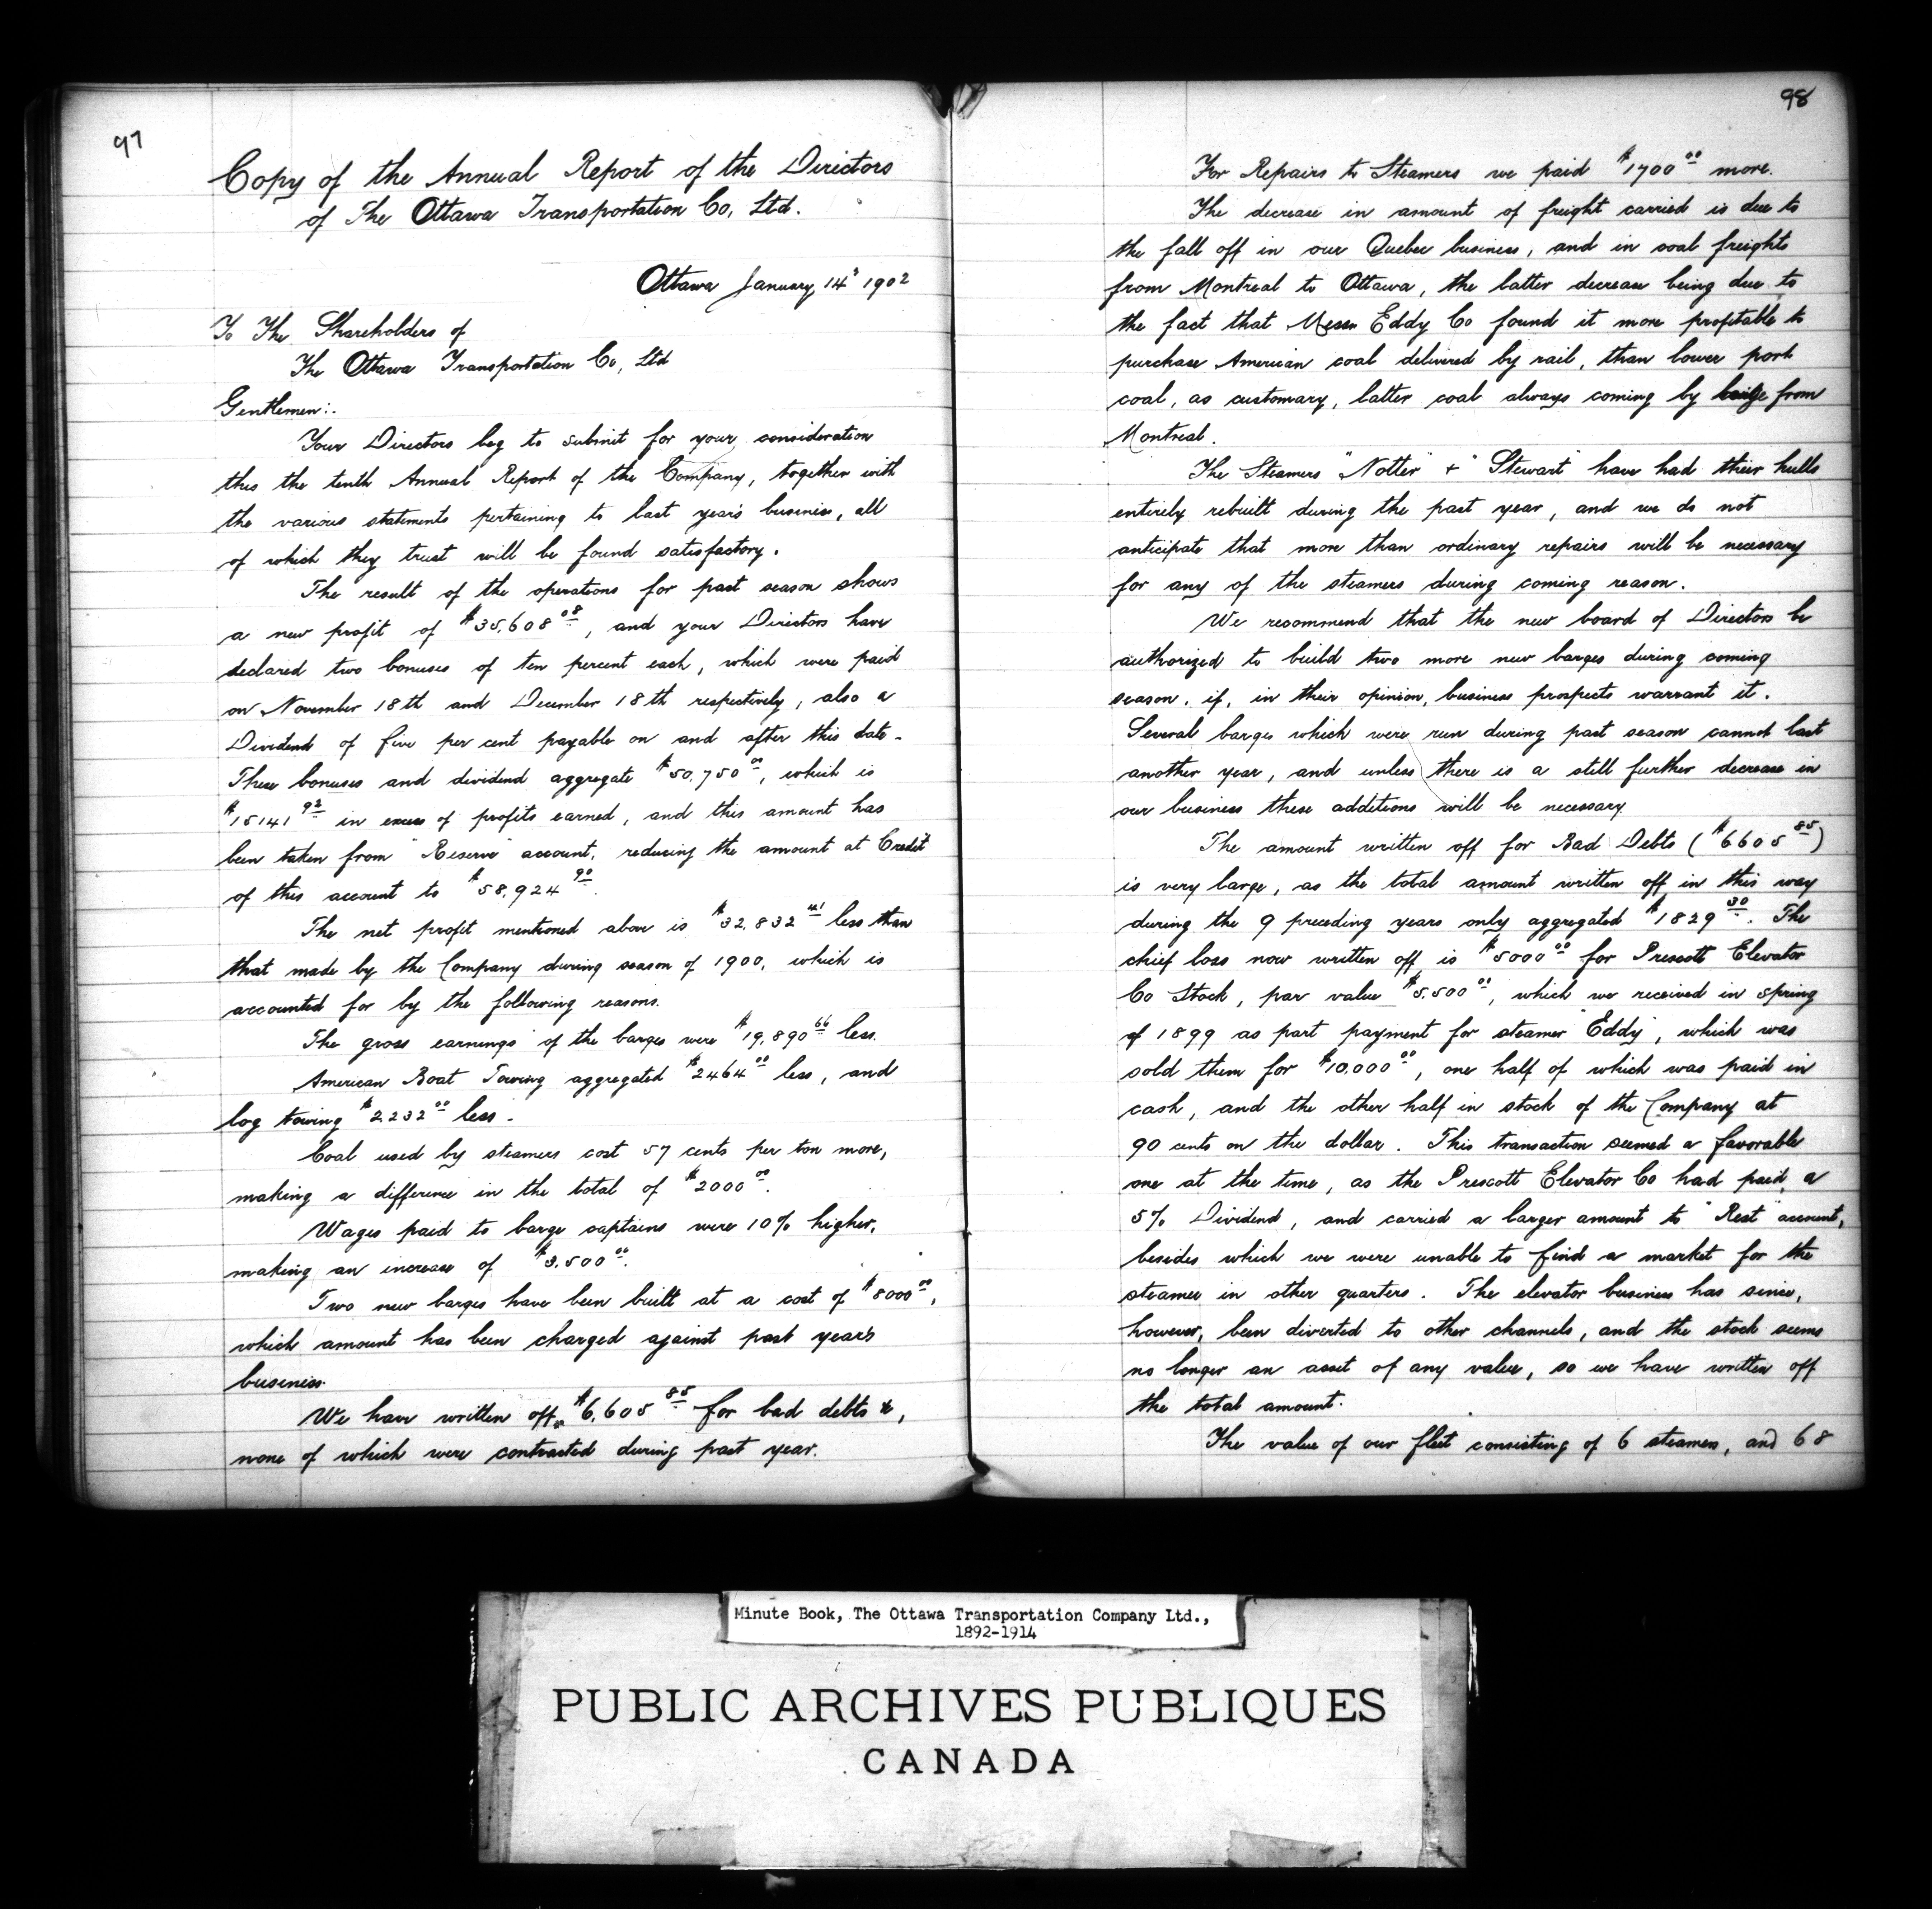 97
Copy of the Annual Report of the Directors
of The Ottawa Transportation Co, Ltd.
Ottawa January 14th 1902
To The Shareholders of
The Ottawa Transportation Co, Ltd
Gentlemen:.
Your Directors beg to submit for your consideration
this the tenth Annual Report of the Company, together with
the various statements pertaining to last year's business, all
of which they trust will be found satisfactory.
The result of the operations for past season shows
a new profit of $35,608 08, and your Directors have
declared two bonuses of ten percent each, which were paid
on November 18th and December 18th respectively, also a
Dividend of five per cent payable on and after this date.
These bonuses and dividend aggregate $50,750 00, which is
$15141 92 in excess of profits earned, and this amount has
been taken from "Reserve" account, reducing the amount at Credit
of this account to $58,924 90.
The net profit mentioned above is $32,832 41 less than
that made by the Company during season of 1900, which is
accounted for by the following reasons.
The gross earnings of the barges were $19,890 66 less.
American Boat Towing aggregated $2464 00 less, and
log towing $2232 00 less.
Coal used by steamers cost 57 cents per ton more,
making a difference in the total of $2000 00.
Wages paid to barge captains were 10% higher,
making an increase of $3,500 00.
Two new barges have been built at a cost of $8000 00,
which amount has been charged against past year's
business.
We have written off $6,605 85 for bad debts,
none of which were contracted during past year.
98
For Repairs to Steamers we paid $1700 00 more.
The decrease in amount of freight carried is due to
the fall off in our Quebec business, and in coal freights
from Montreal to Ottawa, the latter decrease being due to
the fact that Messrs Eddy Co found it more profitable to
purchase American coal delivered by rail, than lower port
coal, as customary, latter coal always coming by barge from
Montreal.
The Steamers "Notter" + "Stewart" have had their hulls
entirely rebuilt during the past year, and we do not
anticipate that more than ordinary repairs will be necessary
for any of the steamers during coming reason.
We recommend that the new board of Directors be
authorized to build two more new barges during coming
season, if, in their opinion, business prospects warrant it.
Several barges which were run during past season cannot last
another year, and unless there is a still further decrease in
our business these additions will be necessary.
The amount written off for Bad Debts ($6605 85)
is very large, as the total amount written off in this way
during the 9 preceding years only aggregated $1829 30. The
chief loss now written off is $5000 00 for Prescott Elevator
Co Stock, par value $5,500 00, which we received in spring
of 1899 as part payment for steamer "Eddy", which was
sold them for $10,000 00, one half of which was paid in
cash, and the other half in stock of the Company at
90 cents on the dollar. This transaction seemed a favorable
one at the time, as the Prescott Elevator Co had paid a
5% Dividend, and carried a larger amount to "Rest" account,
besides which we were unable to find a market for the
steamer in other quarters. The elevator business has since,
however, been diverted to other channels, and the stock seems
no longer an asset of any value, so we have written off
the total amount.
The value of our fleet consisting of 6 steamers, and 68
Minute Book, The Ottawa Transportation Company Ltd.,
1892-1914
PUBLIC ARCHIVES PUBLIQUES
CANADA